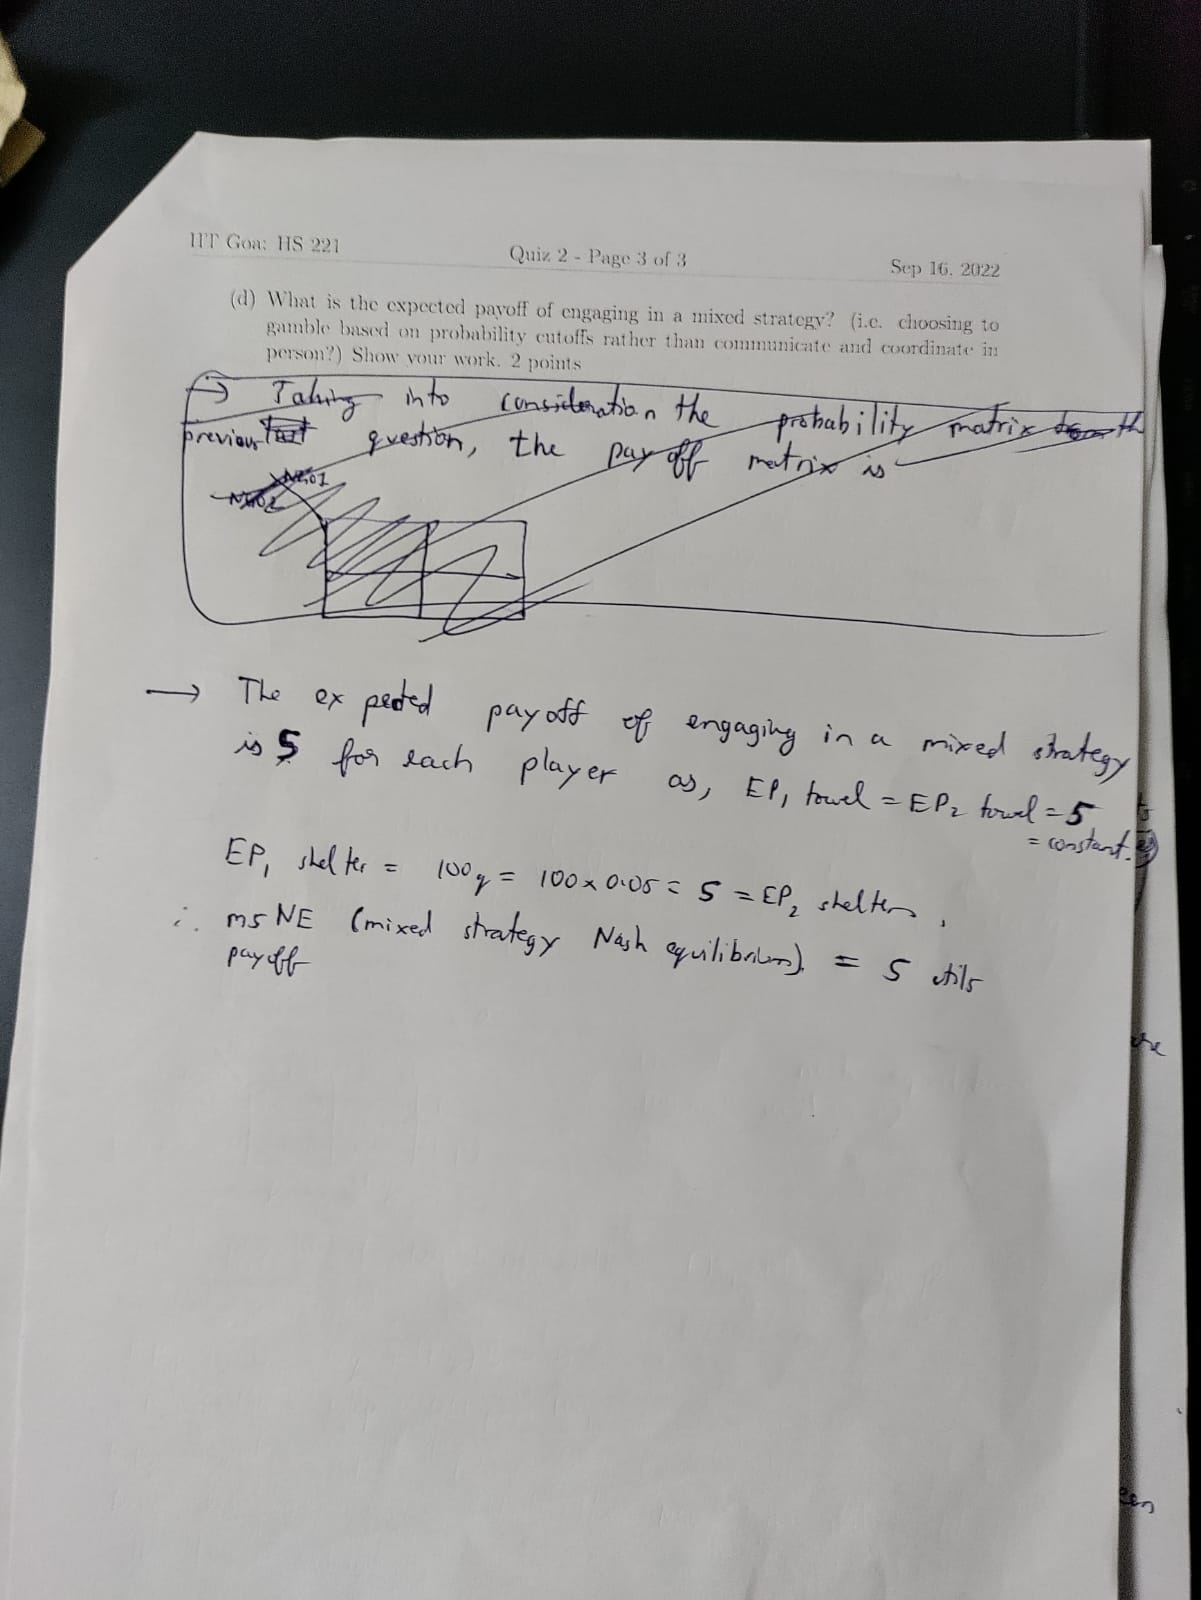 IIT Goa: HS 221
Quiz 2 - Page 3 of 3
Sep 16, 2022
(d) What is the expected payoff of engaging in a mixed strategy? (i.e. choosing to
gamble based on probability cutoffs rather than communicate and coordinate in
person?) Show your work. 2 points
→ Taking into consideration the probability matrix
previous question, the pay off matrix is
NGO1
NGO2
→ The expected payoff of engaging in a mixed strategy
is 5 for each player as, EP₁ towel = EP₂ towel = 5
= constant.
EP₁ shelter = 100q = 100 x 0.05 = 5 = EP₂ shelters,
∴ msNE (mixed strategy Nash equilibrium) = 5 utils
payoff
the
een